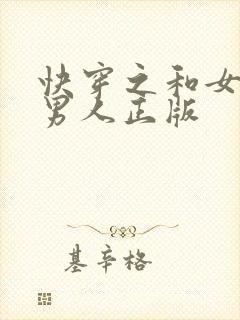 快穿之和女
男人正版
基辛格